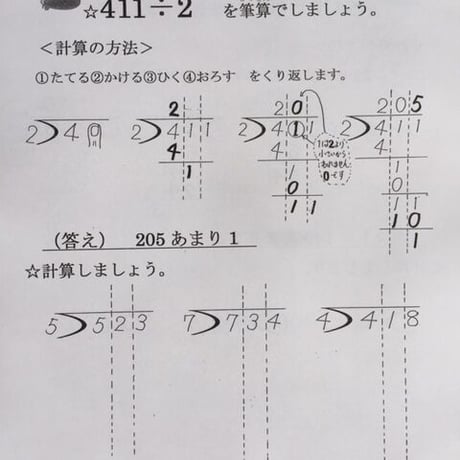 ☆411÷2 を筆算でしましょう。
＜計算の方法＞
①たてる②かける③ひく④おろす をくり返します。
2 2 0 2 0 5
2)4 2)411 2)411 2)411
4 4 4
1 1 1
0 0
11 11
10
1
1は2より
小さいから
0です
（答え） 205あまり1
☆計算しましょう。
5)523 7)734 4)418